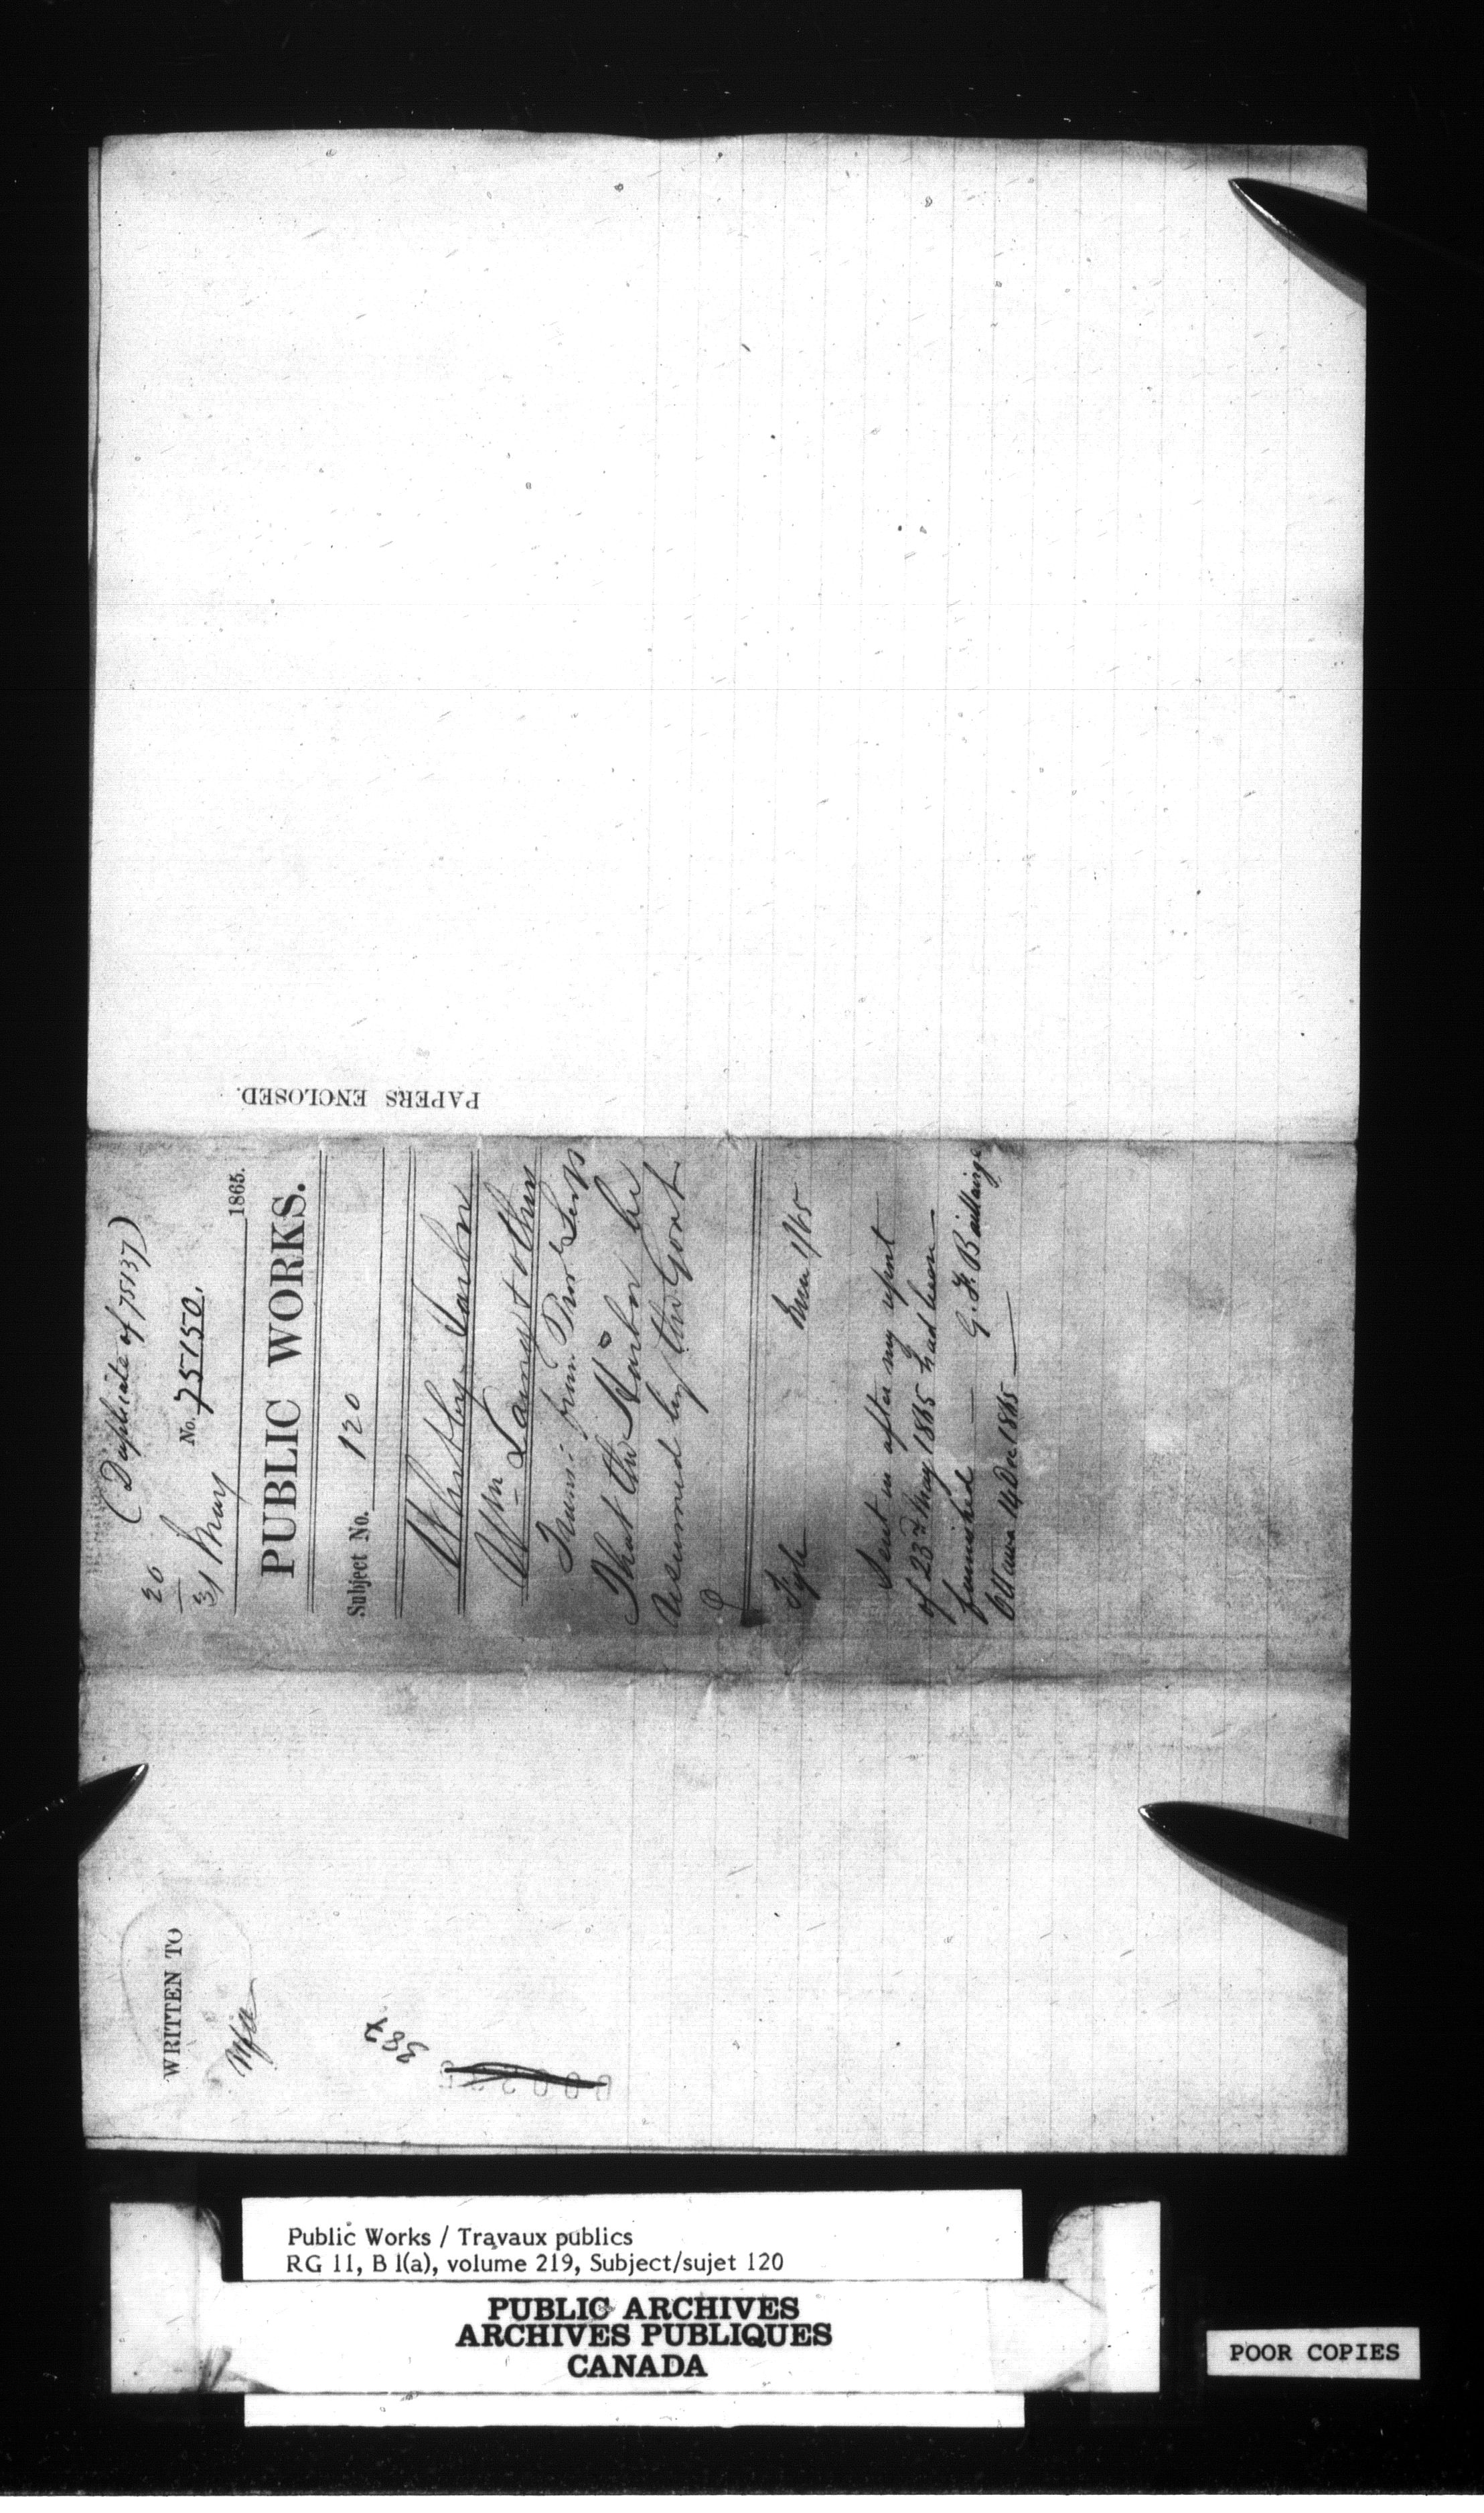 PAPERS ENCLOSED.
(Duplicate of 75137)
20
31 May
No. 75150.
1865.
PUBLIC WORKS.
Subject No. 120
Whitby Harbor
Wm Laing & others
Transn: from Prov Secy
That the Harbor be
Assumed by the Govt
Fyle
Sent in after my report
of 23rd May 1865 had been
furnished
G. F. Baillairge
Ottawa 14 Dec 1865
WRITTEN TO
387
Public Works / Travaux publics
RG 11, B 1(a), volume 219, Subject/sujet 120
PUBLIC ARCHIVES
ARCHIVES PUBLIQUES
CANADA
POOR COPIES